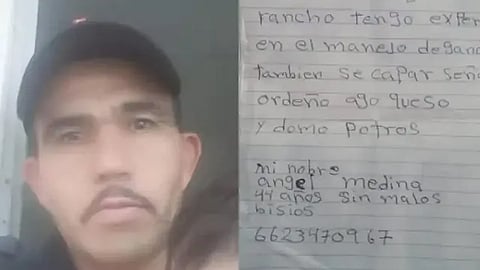 rancho tengo exper
en el manejo degana
tambien se capar seña
ordeño ago queso
y domo potros
mi nobre
angel medina
44 años sin malos
bisios
6623470967